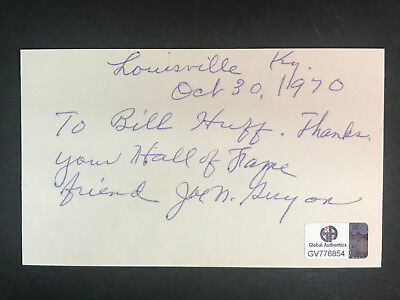 Louisville Ky.
Oct 30, 1970
To Bill Huff. Thanks.
your Hall of Fame
friend Joe N. Guyon
Global Authentics
GV776854